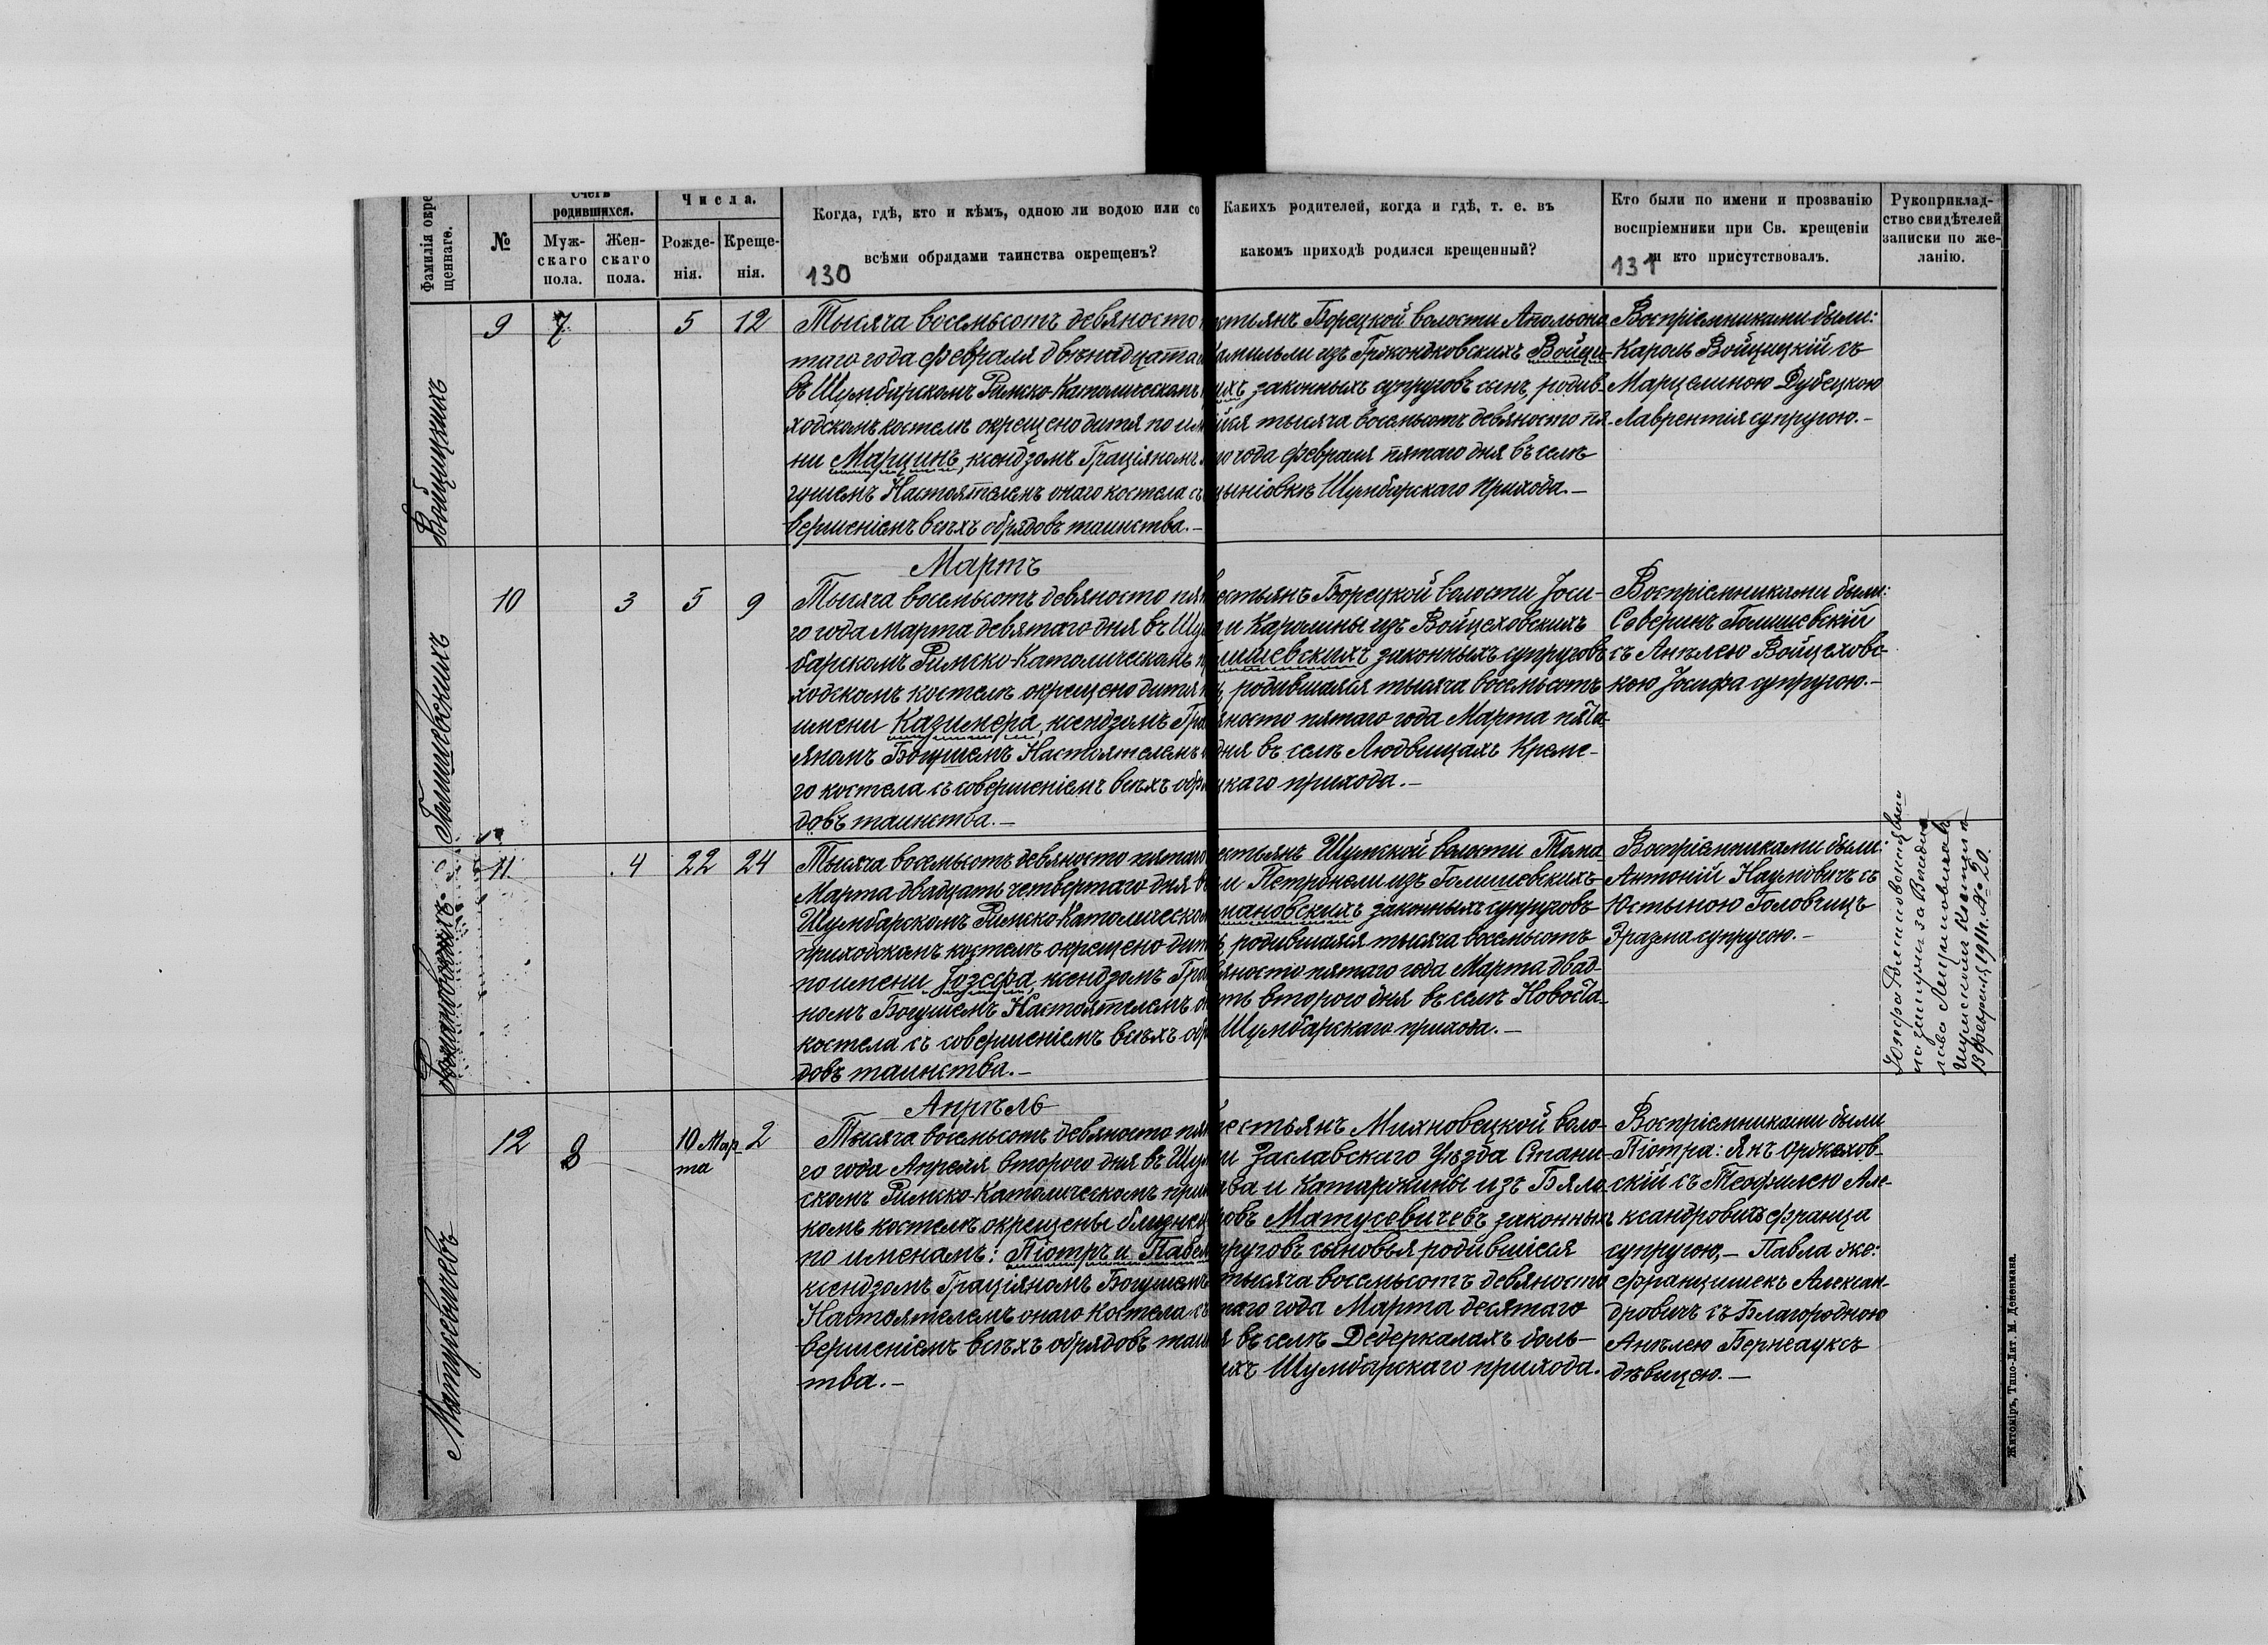 Фамилія окре
щеннаго.
№
Счетъ
родившихся.
Муж-
скаго
пола.
Жен-
скаго
пола.
Числа.
Рожде-
нія.
Креще-
нія.
Когда, гдѣ, кто и кѣмъ, одною ли водою или со
всѣми обрядами таинства окрещенъ?
130
Какихъ родителей, когда и гдѣ, т. е. въ
какомъ приходѣ родился крещенный?
Кто были по имени и прозванію
воспріемники при Св. крещеніи
и кто присутствовалъ.
131
Рукоприклад-
ство свидѣтелей
записки по же-
ланію.
Войцицкихъ
9 7 5 12
Тысяча восемьсотъ девяносто
таго года февраля двѣнадцата
въ Шумбарскомъ Римско-Католическомъ
ходскомъ костелѣ окрещено дитя по им
ни Марцинъ, ксендзомъ Граціяномъ
гушемъ Настоятелемъ онаго костела съ
вершеніемъ всѣхъ обрядовъ таинства.-
стьянъ Борецкой волости Апольона
Камильли изъ Гржондковскихъ Войци-
ихъ законныхъ супруговъ сынъ, родив-
ійся тысяча восемьсотъ девяносто пя-
го года февраля пятаго дня въ селѣ
Шумбарскаго прихода.-
Воспріемниками были:
Кароль Войцицкій съ
Марцелиною Дубецкою
Лаврентія супругою.-
Голишевскихъ
Мартъ
10 3 5 9
Тысяча восемьсотъ девяносто пят
го года Марта девятаго дня въ Шум
барскомъ Римско-Католическомъ п
ходскомъ костелѣ окрещено дитя
имени Казимера, ксендзомъ Гра
яномъ Богушемъ Настоятелемъ о
го костела съ совершеніемъ всѣхъ обря
довъ таинства.-
естьянъ Борецкой волости Іоси-
а и Каролины изъ Войцеховскихъ
лишевскихъ законныхъ супруговъ
родившаяся тысяча восемьсотъ
яносто пятаго года Марта пята-
дня въ селѣ Людвищахъ Креме-
цкаго прихода.-
Воспріемниками были:
Северинъ Голишевскій
съ Анѣлею Войцеховс-
кою Іосифа супругою.-
11 4 22 24
Тысяча восемьсотъ девяносто пятаго
Марта двадцать четвертаго дня въ
Шумбарскомъ Римско-Католическом
приходскомъ костелѣ окрещено дит
по имени Іозефа, ксендзомъ Гра
номъ Богушемъ Настоятелемъ о
костела съ совершеніемъ всѣхъ обр
довъ таинства.-
стьянъ Шумской волости
и Петронели изъ Голишевскихъ
мановскихъ законныхъ супруговъ
родившаяся тысяча восемьсотъ
яносто пятаго года Марта двад-
ть второго дня въ селѣ Новоста-
Шумбарскаго прихода.-
Воспріемниками были:
Антоній Наумовичъ съ
Юстыною Головчицъ
Эразма супругою.-
13 февраля 1911г. № 20.
Матусевичевъ
Апрѣль
12 8 10 Мар- 2
та
Тысяча восемьсотъ девяносто пят
го года Апреля второго дня въ Шум
скомъ Римско-Католическомъ при
комъ костелѣ окрещены близнец
по именамъ: Піотръ и Павел
ксендзомъ Граціяномъ Богушемъ
Настоятелемъ онаго костела съ
вершеніемъ всѣхъ обрядовъ таин
тва.-
естьянъ Михновецкой воло-
и Заславскаго Уѣзда Стани-
ава и Катаржины изъ Бяло-
ровъ Матусевичевъ законныхъ
пруговъ сыновья родившіеся
тысяча восемьсотъ девяносто
таго года Марта десятаго
я въ селѣ Дедеркалахъ боль-
ихъ Шумбарскаго прихода.
Воспріемниками были
Піотра: Янъ Оржехов-
скій съ Теофилею Але-
ксандровичъ Франца
супругою,- Павла же:
Францишекъ Алексан-
дровичъ съ Благородною
Анѣлею Бернеауксъ
дѣвицею.-
Житоміръ, Типо-Лит. М. Дененмана.